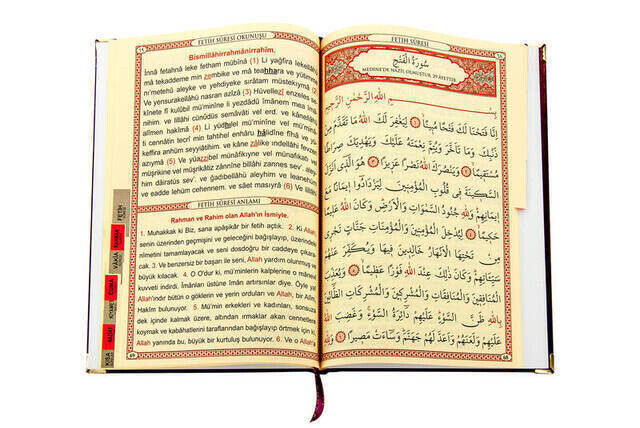 FETİH SÛRESİ OKUNUŞU
Bismillâhirrahmânirrahîm,
İnnâ fetahnâ leke fetham mübînâ (1) Li yağfira lekellâhü
mâ tekaddeme min zembike ve mâ teahhara ve yütimme
ni'metehû aleyke ve yehdiyeke sırâtam müstekîymâ (2)
Ve yensurakellâhü nasran azîzâ (3) Hüvellezî enzeles se-
kînete fî kulûbil mü'minîne li yezdâdû îmânem mea îmâ-
nihim. ve lillâhi cünûdüs semâvâti vel erd. ve kânellâhü
alîmen hakîmâ (4) Li yüdhilel mü'minîne vel mü'minâ-
ti cennâtin tecrî min tahtihel enhâru hâlidîne fîhâ ve yü-
keffira anhüm seyyiâtihim. ve kâne zâlike ındellâhi fevzen
azıymâ (5) Ve yüazzibel münâfikîyne vel münâfikâti vel
müşrikîne vel müşrikâtiz zânnîne billâhi zannes sev'. aley-
him dâiratüs sev'. ve ğadıbellâhü aleyhim ve leanehüm
ve eadde lehüm cehennem. ve sâet masıyrâ (6) Ve lillâhi
FETİH SÛRESİ ANLAMI
Rahman ve Rahim olan Allah'ın İsmiyle.
1. Muhakkak ki Biz, sana apaşikâr bir fetih açtık. 2. Ki Allah
senin üzerinden geçmişini ve geleceğini bağışlayıp, üzerindeki
nîmetini tamamlayacak ve seni dosdoğru bir caddeye çıkara-
cak. 3. Ve benzersiz bir başarı ile seni, Allah yardım olunmuş ve
büyük kılacak. 4. O O'dur ki, mü'minlerin kalplerine o mâne-
kuvveti indirdi. Îmânları üstüne îman artırsınlar diye. Öyle ya
Allah'ındır bütün o göklerin ve yerin orduları ve Allah, bir Alîm
Hakîm bulunuyor. 5. Mü'min erkekleri ve kadınları, sonsuza
dek içinde kalmak üzere, altından ırmaklar akan cennetlere
koymak ve kabahatlerini taraflarından bağışlayıp örtmek için ki,
Allah yanında bu, büyük bir kurtuluş bulunuyor. 6. Ve o
69
FETİH
VÂKIA
CUMA
KISA
FETİH SÛRESİ
سُورَةُ الْفَتْحِ
MEDİNE'DE NÂZİL OLMUŞTUR, 29 ÂYETTİR
بِسْمِ اللهِ الرَّحْمٰنِ الرَّحِيمِ
اِنَّا فَتَحْنَا لَكَ فَتْحًا مُبِينًا ﴿١﴾ لِيَغْفِرَ لَكَ اللهُ مَا تَقَدَّمَ مِنْ
ذَنْبِكَ وَمَا تَاَخَّرَ وَيُتِمَّ نِعْمَتَهُ عَلَيْكَ وَيَهْدِيَكَ صِرَاطًا
مُسْتَقِيمًا ﴿٢﴾ وَيَنْصُرَكَ اللهُ نَصْرًا عَزِيزًا ﴿٣﴾ هُوَ الَّذِى اَنْزَلَ
السَّكِينَةَ فِى قُلُوبِ الْمُؤْمِنِينَ لِيَزْدَادُوا اِيمَانًا مَعَ
اِيمَانِهِمْ وَلِلّٰهِ جُنُودُ السَّمٰوَاتِ وَالْاَرْضِ وَكَانَ اللهُ عَلِيمًا
حَكِيمًا ﴿٤﴾ لِيُدْخِلَ الْمُؤْمِنِينَ وَالْمُؤْمِنَاتِ جَنَّاتٍ تَجْرِى
مِنْ تَحْتِهَا الْاَنْهَارُ خَالِدِينَ فِيهَا وَيُكَفِّرَ عَنْهُمْ
سَيِّئَاتِهِمْ وَكَانَ ذٰلِكَ عِنْدَ اللهِ فَوْزًا عَظِيمًا ﴿٥﴾ وَيُعَذِّبَ
الْمُنَافِقِينَ وَالْمُنَافِقَاتِ وَالْمُشْرِكِينَ وَالْمُشْرِكَاتِ الظَّانِّينَ
بِاللهِ ظَنَّ السَّوْءِ عَلَيْهِمْ دَائِرَةُ السَّوْءِ وَغَضِبَ اللهُ
عَلَيْهِمْ وَلَعَنَهُمْ وَاَعَدَّ لَهُمْ جَهَنَّمَ وَسَاءَتْ مَصِيرًا ﴿٦﴾ وَلِلّٰهِ
68